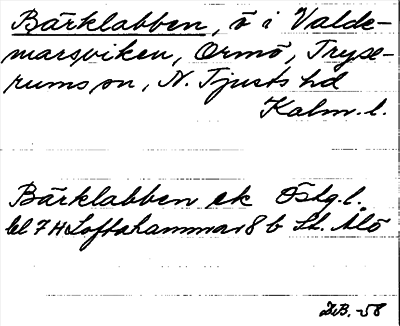 Bärklabben, ö i Valde-
marsviken, Ormö, Tryse-
rums sn, N. Tjusts hd
Kalm. l.
Bärklabben ek Östg. l.
bl 7H Loftahammar 8b St. Ålö
-58